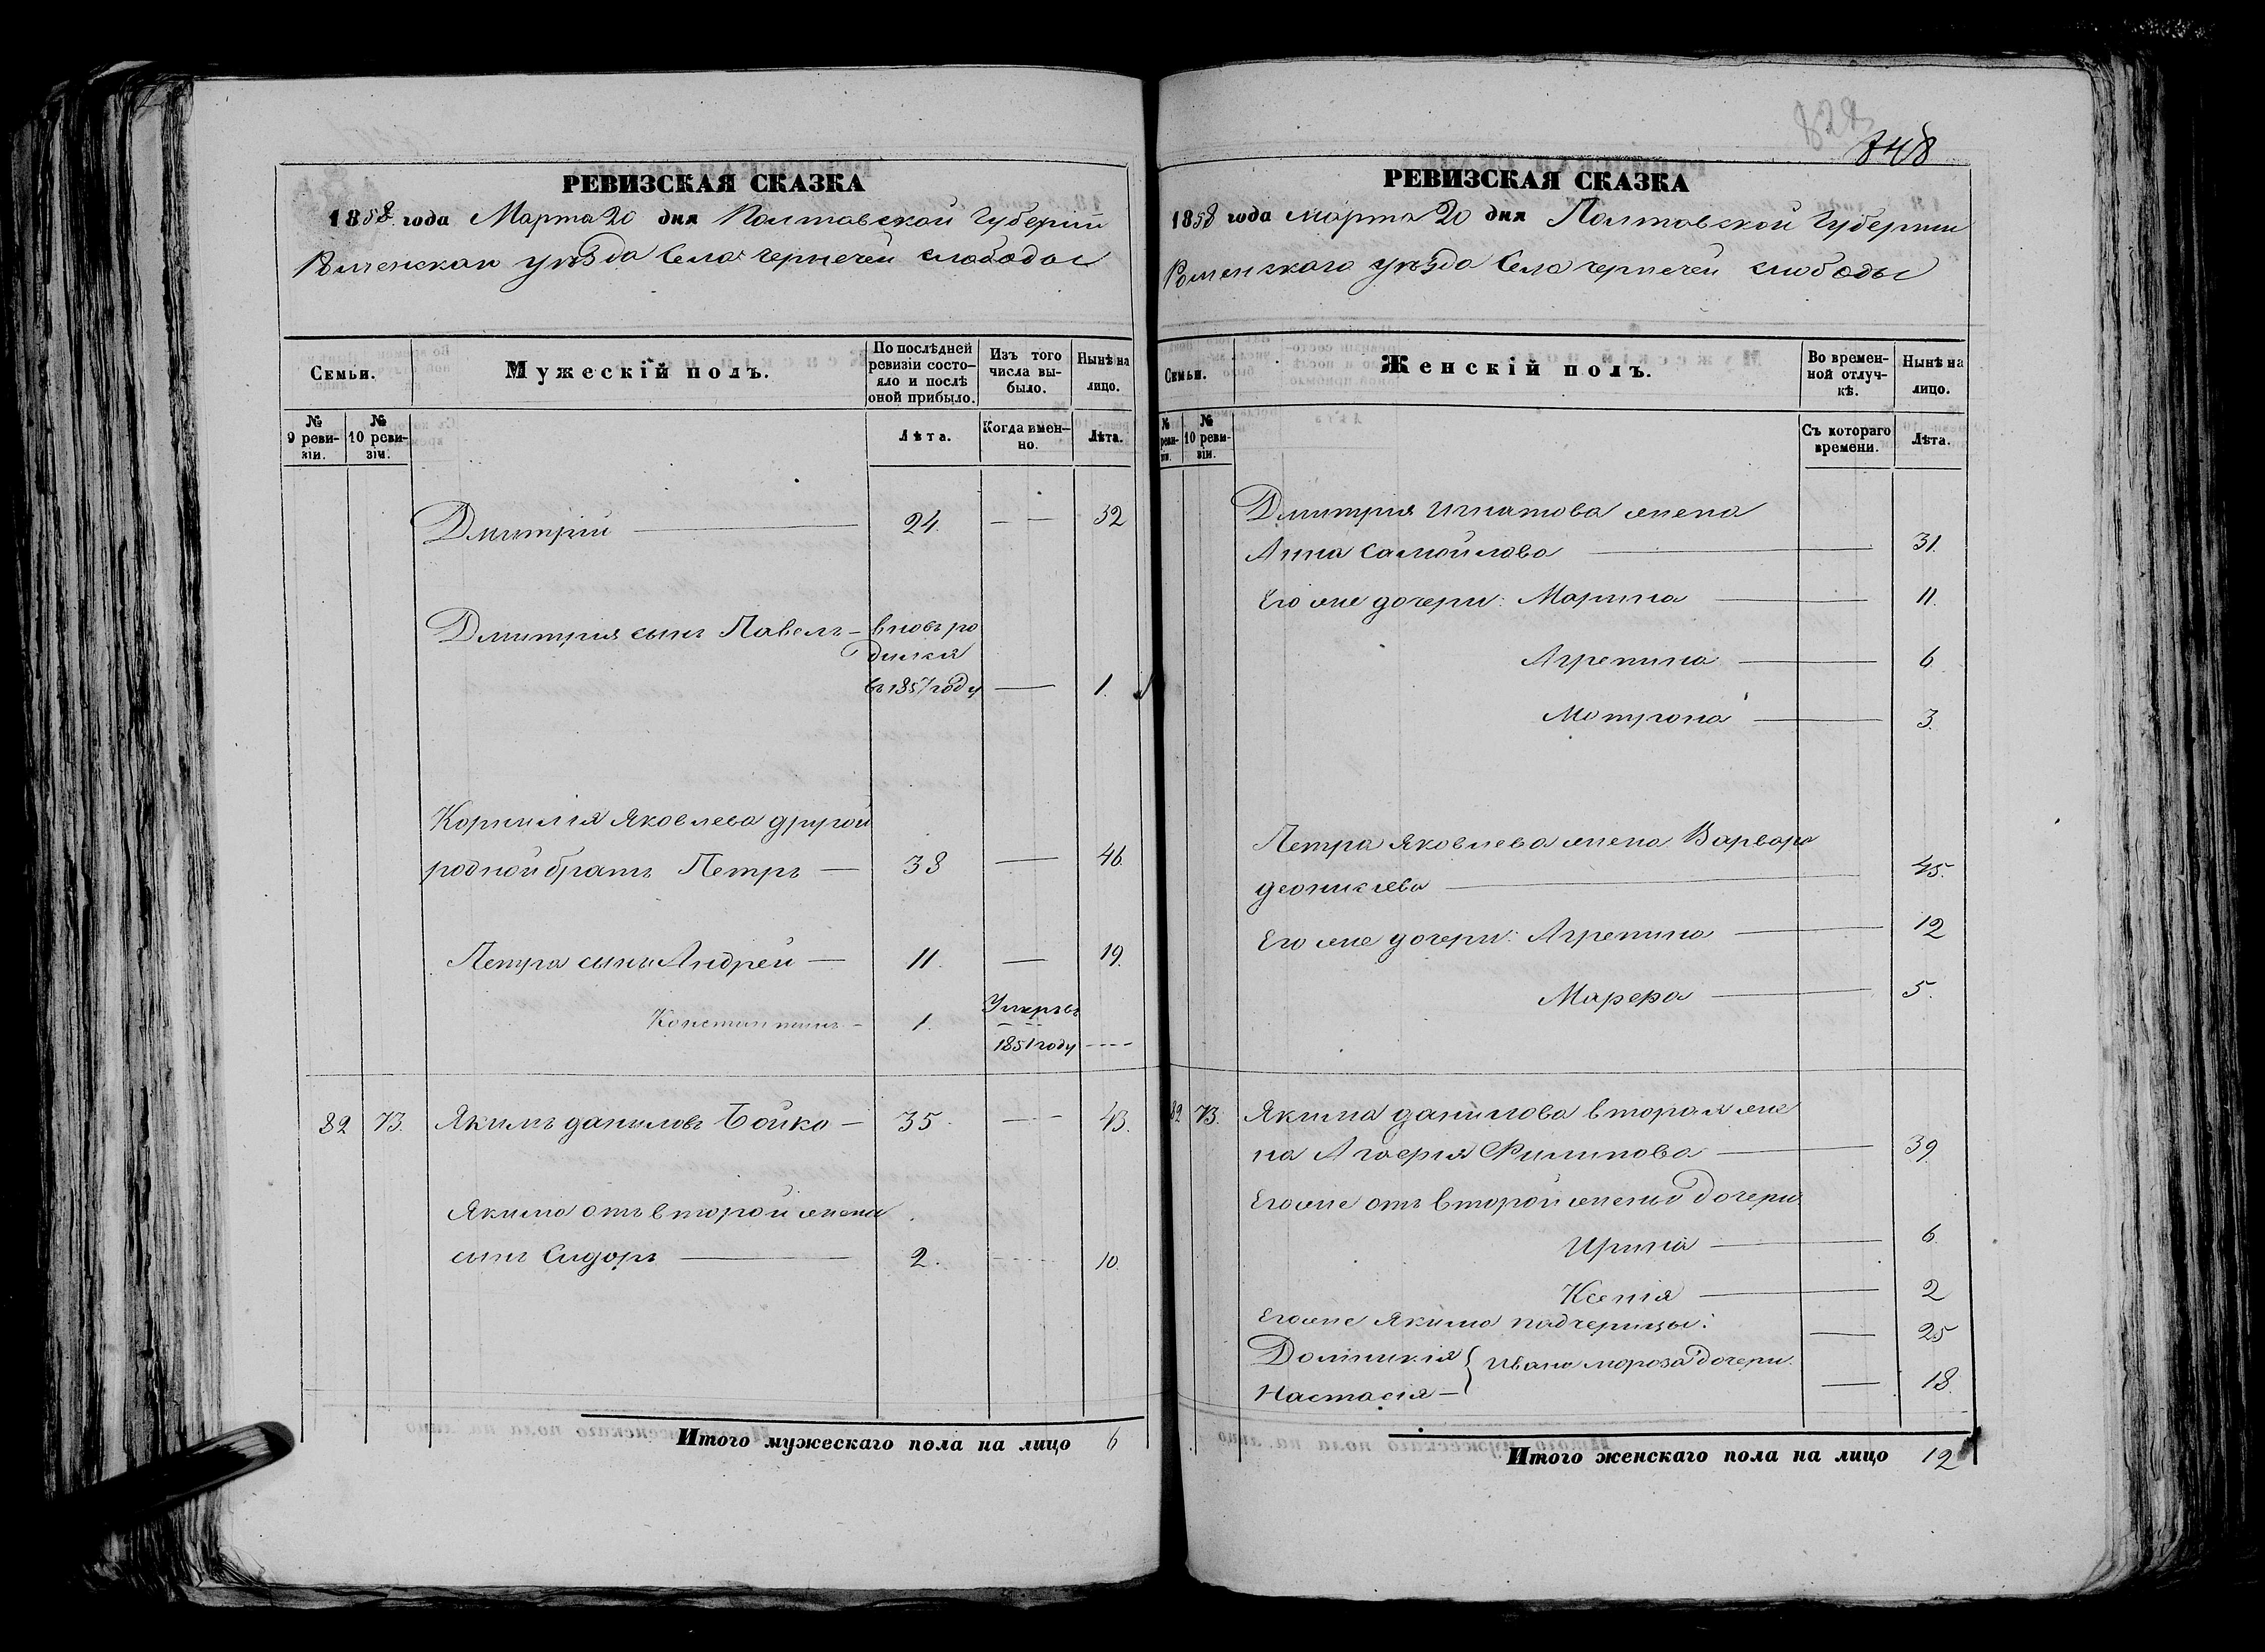 РЕВИЗСКАЯ СКАЗКА
1858 года Марта 20 дня Полтавской Губерніи
Роменскаго уѣзда Села Чернечей слободы
Семьи.
Мужескій полъ.
По послѣдней ревизіи состояло и послѣ оной прибыло.
Изъ того числа выбыло.
Нынѣ на лицо.
№ 9 ревизіи.
№ 10 ревизіи.
Лѣта.
Когда имен—но.
Лѣта.
Дмитрій — 24. — — 32
Дмитрія сынъ Павелъ — вновь ро
дился
въ 1857 году — 1.
Корнилія Яковлева другой
родной братъ Петръ — 38 — 46.
Петра сыны Андрей — 11. — 19.
Константинъ — 1. Умеръ въ
1851 году ----
82 73. Якимъ даниловъ Бойко — 35. — 43.
Якима отъ второй жены
сынъ Сидоръ — 2. ---- 10.
Итого мужескаго пола на лицо 6
828
748
РЕВИЗСКАЯ СКАЗКА
1858 года марта 20 дня Полтавской Губерніи
Роменскаго уѣзда Села чернечей слободы
Семьи.
Женскій полъ.
Во временной отлучкѣ.
Нынѣ на лицо.
№ реви-
№ 10 ревизіи.
Съ котораго времени.
Лѣта.
Дмитрія Игнатова жена
Анна Самойлова — 31.
Его же дочери: Марина — 11.
Агрепина — 6
Мотрона — 3.
Петра Яковлева жена Варвара
— 45.
Его же дочери: Агрепина — 12
— 5.
82 73. Якима данилова вторая же
на Филипова — 39.
Его же отъ второй жены дочери
Ирина — 6.
Ксенія — 2
Его же Якима падчерицы:
Домникія { Ивана мороза дочери. — 25
Настасія — 18.
Итого женскаго пола на лицо 12